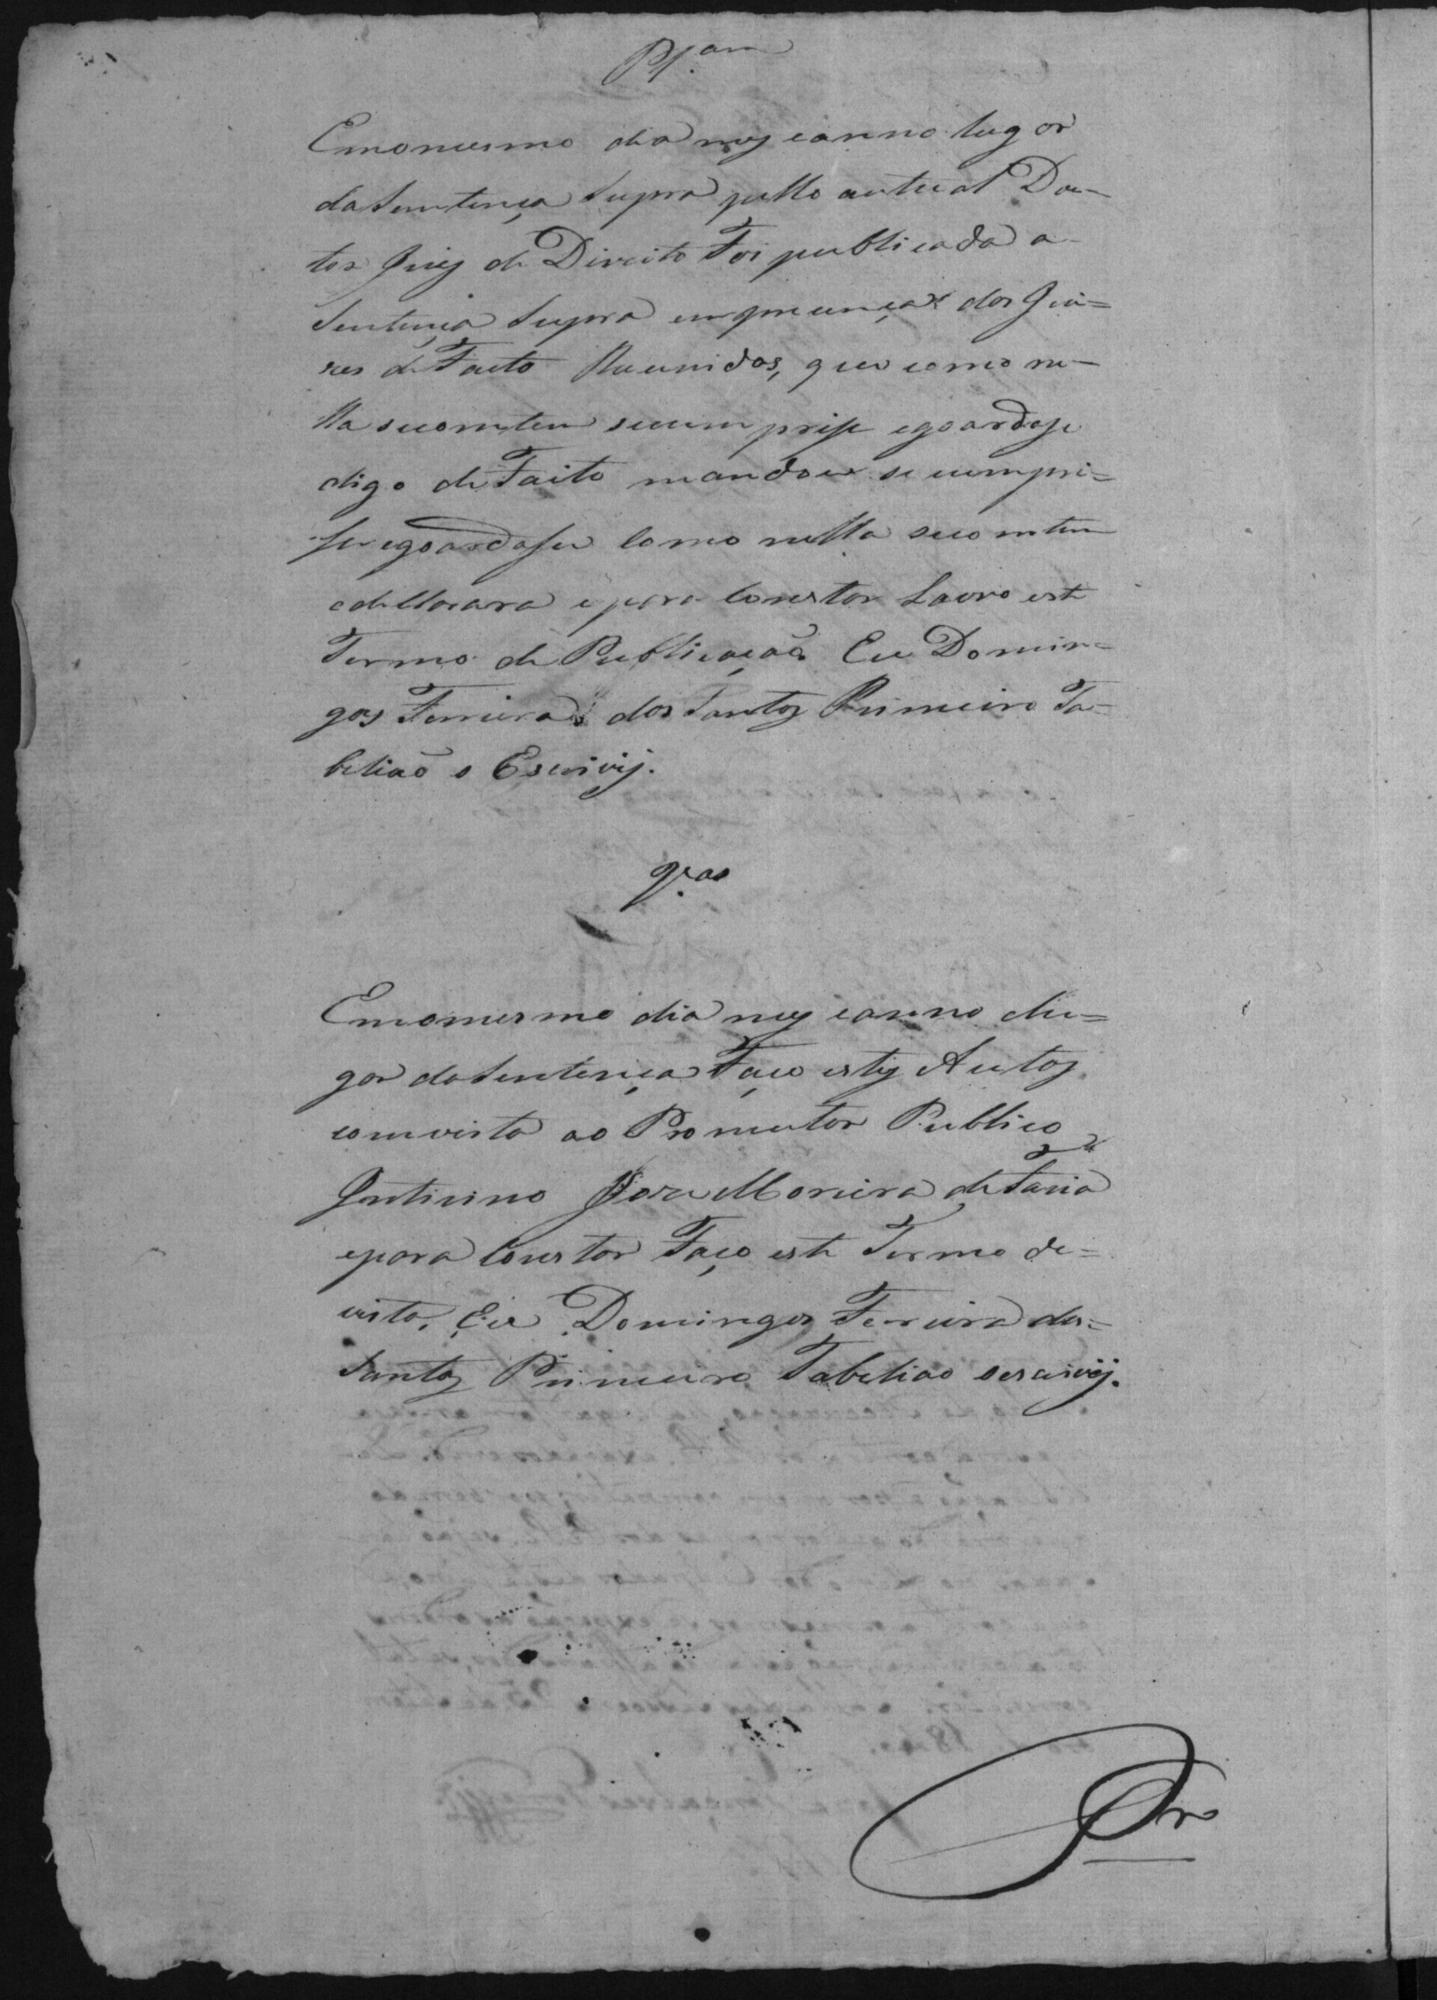 Emomesmo dia mez eanno lugar
dasentença supra pello autual Dou-
tor Juiz de Direito Foi publicada a
Sentença supra em prezença dos Jui=
zes de Facto Reunidos, que como ne-
lla secontem secumprise egoardase
digo de Facto mandou se cumpri=
se egoardase como nella secontem
edellocara e para Constor Lavro este
Termo de Publicação Eu Domin=
gos Ferreira dos Santos Primeiro Ta-
belião o Escrivij.
Emomesmo dia mez eanno elu=
gar dasentença Faço estes Autos
comvista ao Promutor Publico
Interino Joze Moreira de Faria
epara Constor Faço este Termo de=
vista. Eu Domingos Ferreira dos=
Santos Primeiro Tabelião oescrivij.